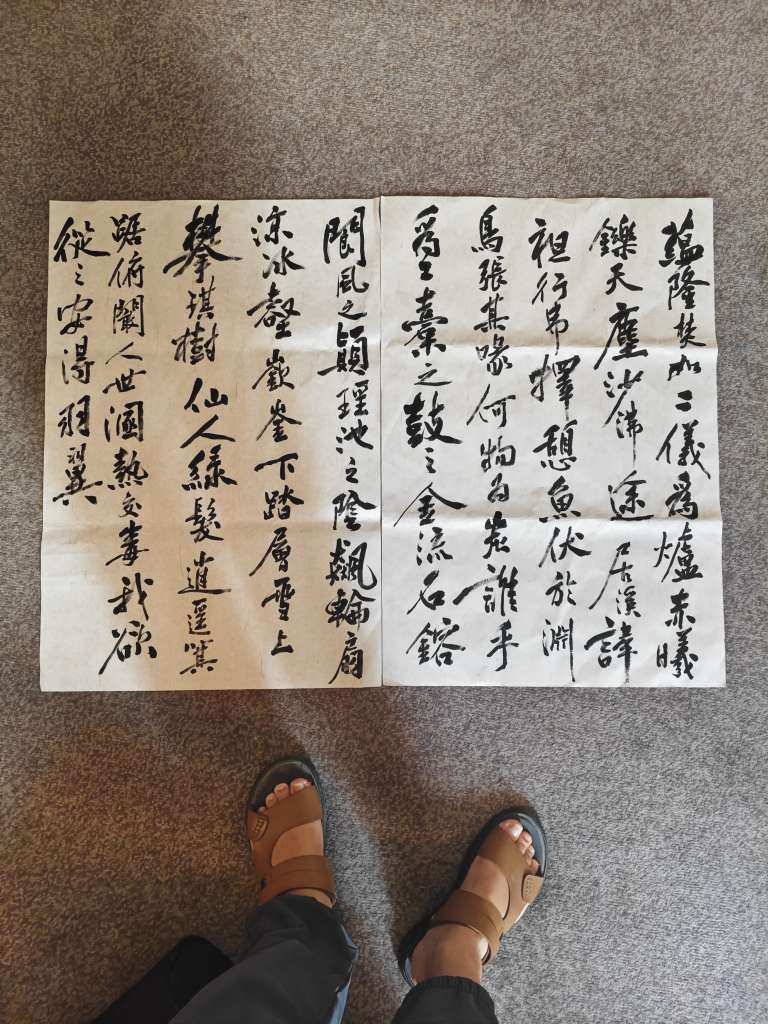 蘊隆焚如二儀為爐赤曦
鑠天塵沙沸途居溪諱
袒行弗擇憩魚伏於淵
鳥張其喙何物為誰乎
為之橐之鼓之金流石鎔
閬風之顛瑤池之陰飆輪扇
涼冰壑嵌崟下踏層雪上
攀琪樹仙人綠髮逍遙箕
踞俯闞人世溷熱交毒我欲
從之安得羽翼